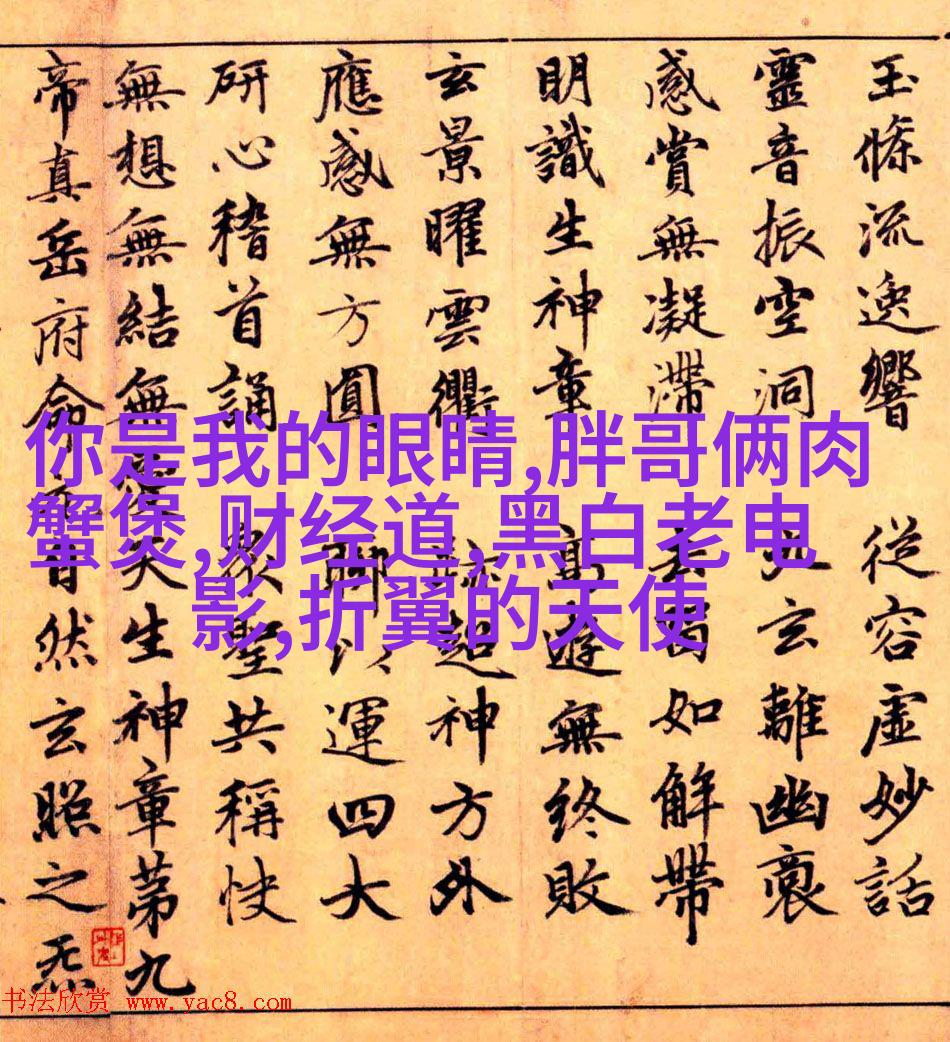 玉條流逸響 從容虛妙話
靈音振空洞 九玄離幽
感賞無凝滯 如解帶
明識生神章 高遊無終敗
玄景曜雲衢 超神方外
應感無方圓 運四大
研心稽首誦 衆聖共稱快
無想無結無愛天生神章第九
帝真岳府命 自然玄照之炁
你是我的眼睛,胖哥俩肉
蟹煲,财经道,黑白老电
影,折翼的天使
书法欣赏 www.yac8.com